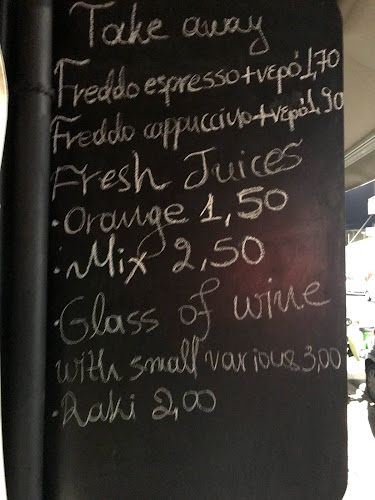 Take away
Freddo espresso+νερό 1,70
Freddo cappuccino+νερό 1,90
Fresh Juices
·Orange 1,50
·Mix 2,50
·Glass of wine
with small various 3,00
·Raki 2,00